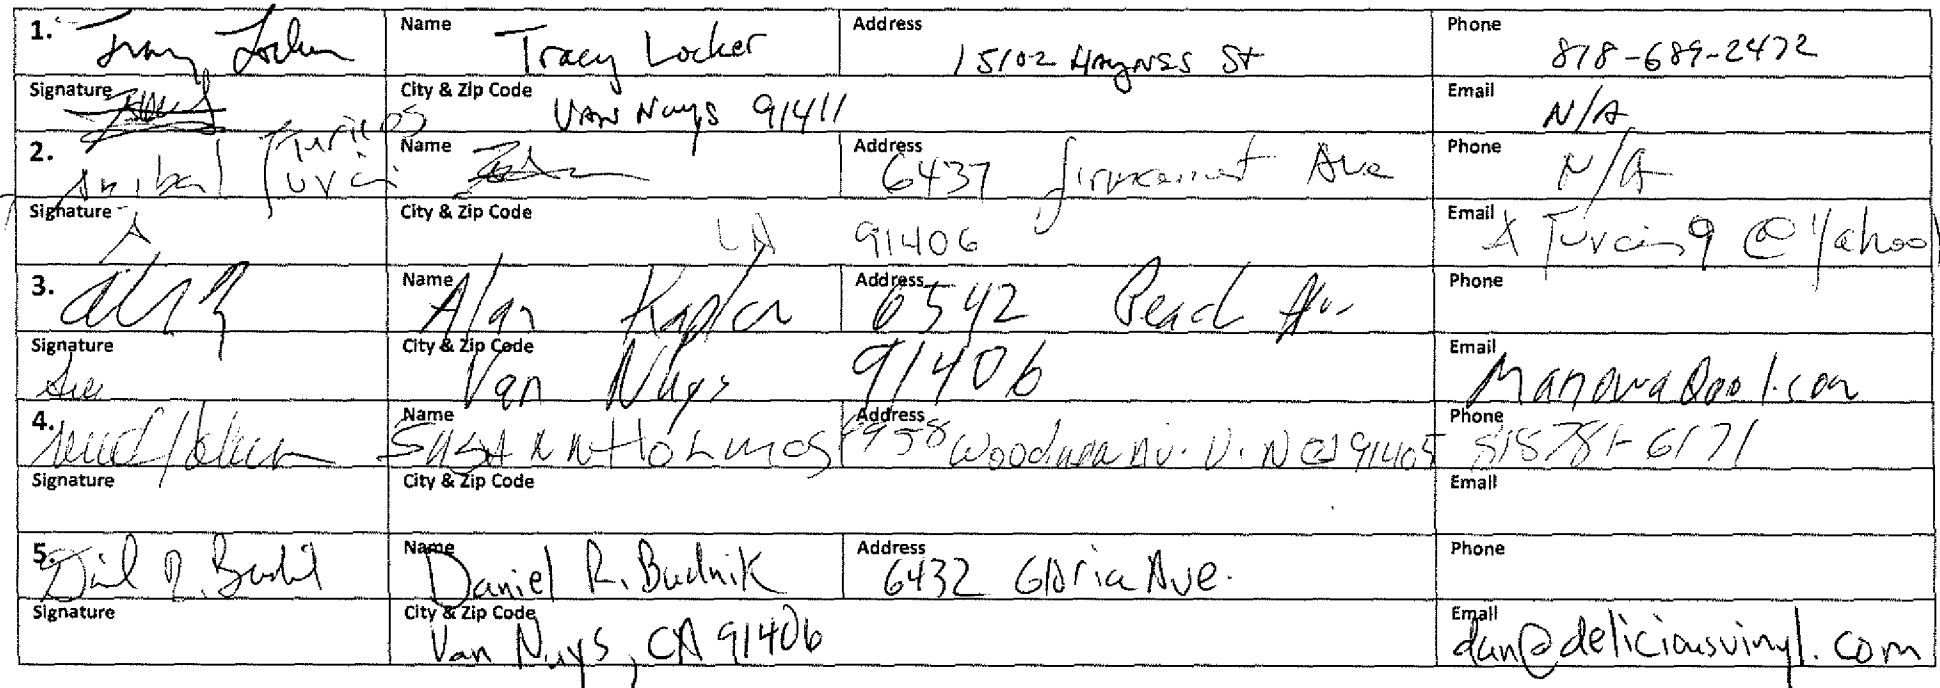 1. Name Tracy Locker Address 15102 Haynes St Phone 818-689-2472
Signature City & Zip Code Van Nuys 91411 Email N/A
2. Anibal Turcios Name Address 6437 Ave Phone N/A
Signature City & Zip Code LA 91406 Email @Yahoo
3. Name Alan Kaplan Address 6542 Peach Av
Phone
Signature City & Zip Code Van Nuys 91406 Email
4. Name Susann Holmes Address Av. V. N Ca 91405 Phone
Signature City & Zip Code Email
5. Daniel R. Budnik Name Daniel R. Budnik Address 6432 Gloria Ave. Phone
Signature City & Zip Code Van Nuys, CA 91406 Email dan@deliciousvinyl.com